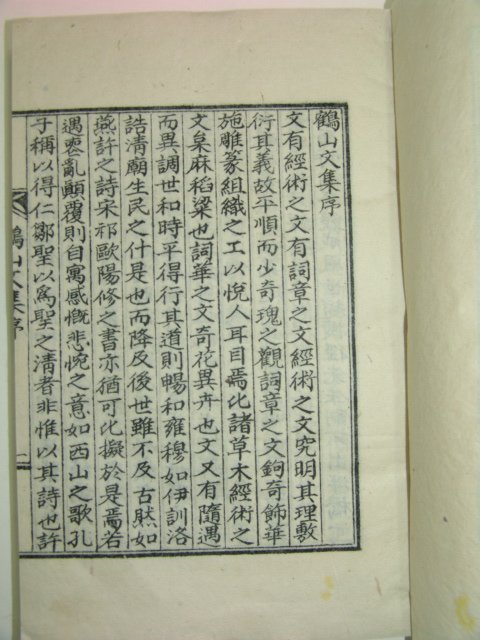 鶴山文集序
文有經術之文有詞章之文經術之文究明其理敷
衍其義故平順而少奇瑰之觀詞章之文鉤奇飾華
施雕篆組織之工以悅人耳目焉比諸草木經術之
文枲麻稻粱也詞華之文奇花異卉也文又有隨遇
而異調世和時平得行其道則暢和雍穆如伊訓洛
誥清廟生民之什是也而降及後世雖不及古然如
燕許之詩宋祁歐陽修之書亦猶可比擬於是焉若
遇衰亂顚覆則自寓感慨悲惋之意如西山之歌孔
子稱以得仁鄒聖以爲聖之淸者非惟以其詩也許
鶴山文集序